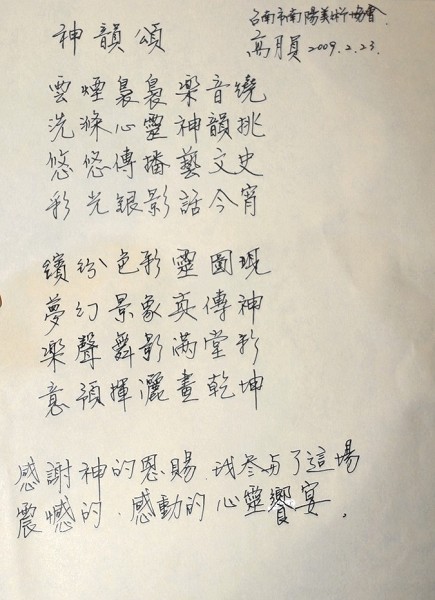 神韻頌
台南市南陽美術協會
高月員 2009.2.23.
雲煙裊裊樂音繞
洗滌心靈神韻挑
悠悠傳播藝文史
彩光銀影話今宵
繽紛色彩靈圖現
夢幻景象真傳神
樂聲舞影滿堂彩
意預揮灑畫乾坤
感謝神的恩賜.我參与了這場
震憾的.感動的心靈饗宴.